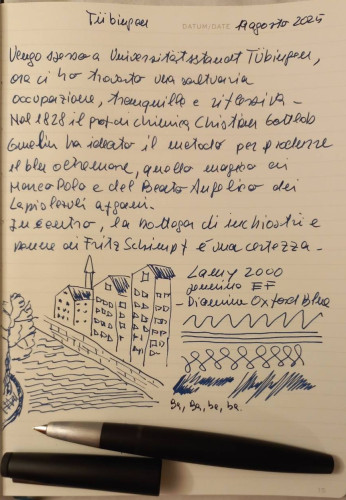 Tübingen
DATUM/DATE Agosto 2025
Vengo spesso a Universitätsstandt Tübingen,
ora ci ho trovato una saltuaria
occupazione, tranquilla e riflessiva -
Nel 1828 il prof di chimica Christian Gottlob
Gmelin ha ideato il metodo per produrre
il blu oltremare, quello magico di
Marco Polo e del Beato Angelico dei
Lapislazuli afgani.
In centro, la bottega di inchiostri e
penne di Fritz Schimpf è una certezza -
Lamy 2000
pennino EF
- Diamine Oxford Blue
Ba, Ba, ba, ba.